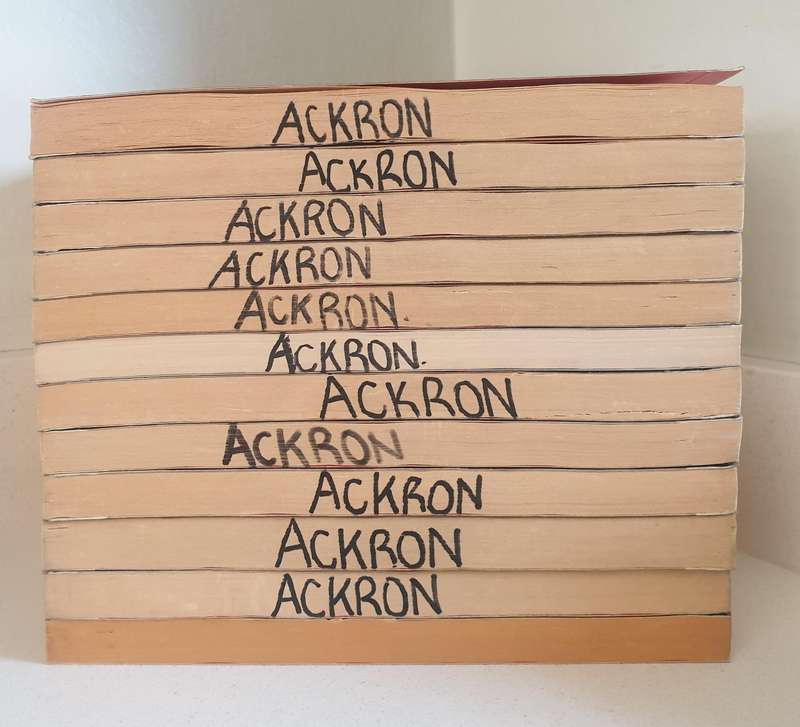 ACKRON
ACKRON
ACKRON
ACKRON
ACKRON.
ACKRON.
ACKRON
ACKRON
ACKRON
ACKRON
ACKRON